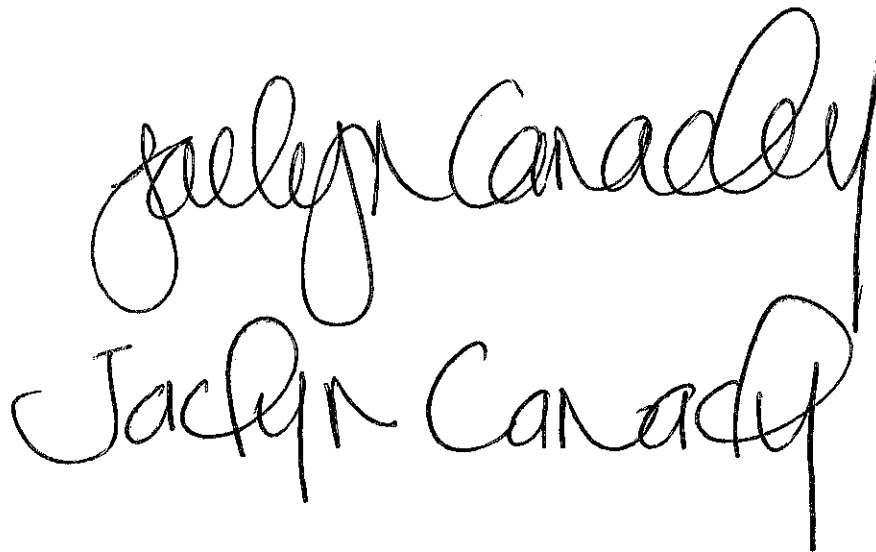 Jaclyn Canady
Jaclyn Canady